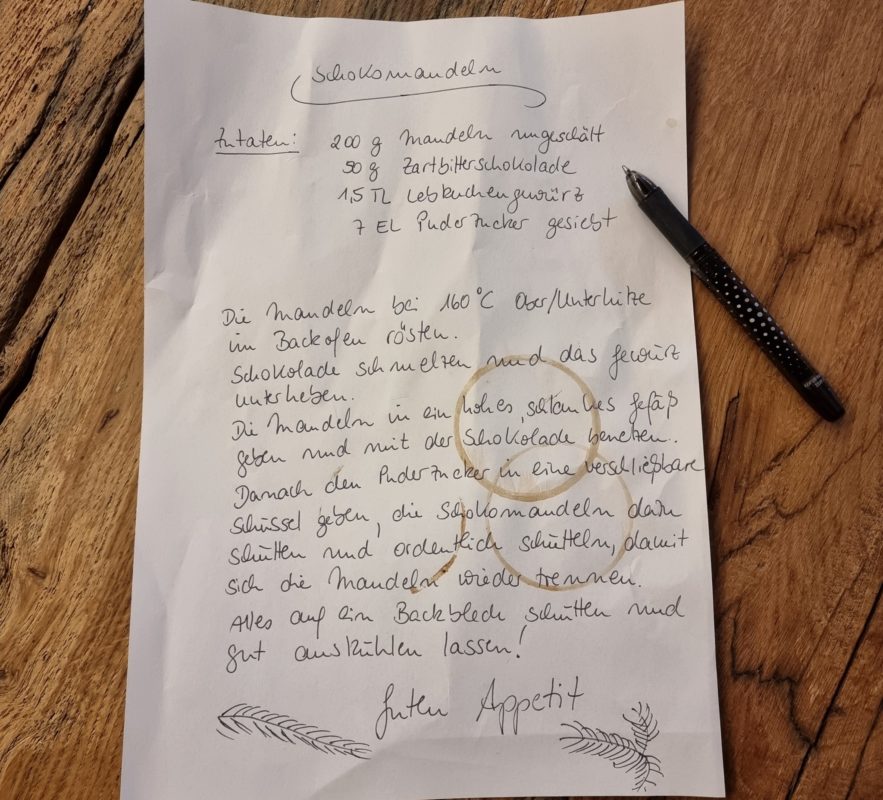 Schokomandeln
Zutaten: 200 g Mandeln ungeschält
50 g Zartbitterschokolade
1,5 TL Lebkuchengewürz
7 EL Puderzucker gesiebt
Die Mandeln bei 160°C Ober/Unterhitze
im Backofen rösten.
Schokolade schmelzen und das Gewürz
unterheben.
Die Mandeln in ein hohes, schlankes Gefäß
geben und mit der Schokolade benetzen.
Danach den Puderzucker in eine verschließbare
Schüssel geben, die Schokomandeln dazu
schütten und ordentlich schütteln, damit
sich die Mandeln wieder trennen.
Alles auf ein Backblech schütten und
gut auskühlen lassen!
Guten Appetit